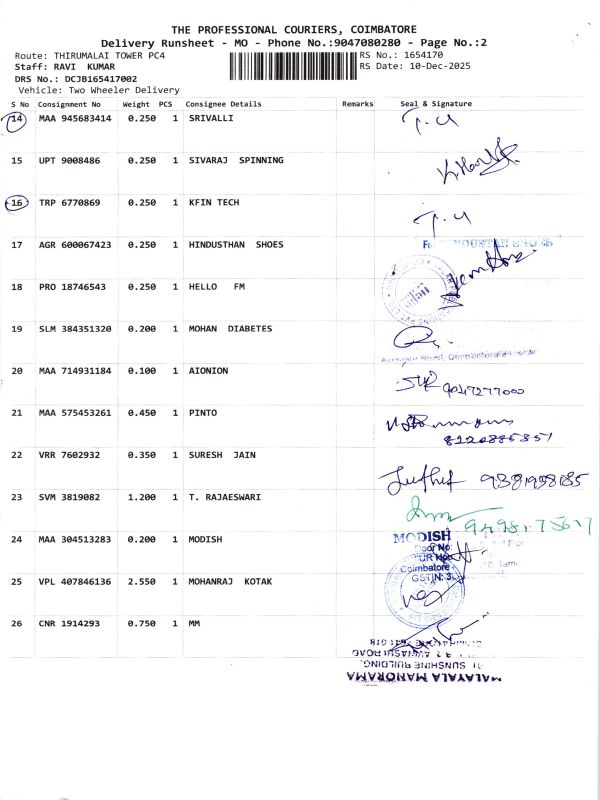 THE PROFESSIONAL COURIERS, COIMBATORE
Delivery Runsheet - MO - Phone No.:9047080280 - Page No.:2
Route: THIRUMALAI TOWER PC4
RS No.: 1654170
Staff: RAVI KUMAR
RS Date: 10-Dec-2025
DRS No.: DCJB165417002
Vehicle: Two Wheeler Delivery
S No Consignment No Weight PCS Consignee Details Remarks Seal & Signature
14 MAA 945683414 0.250 1 SRIVALLI
15 UPT 9008486 0.250 1 SIVARAJ SPINNING
16 TRP 6770869 0.250 1 KFIN TECH
17 AGR 600067423 0.250 1 HINDUSTHAN SHOES
18 PRO 18746543 0.250 1 HELLO FM
19 SLM 384351320 0.200 1 MOHAN DIABETES
20 MAA 714931184 0.100 1 AIONION 9047277000
21 MAA 575453261 0.450 1 PINTO
8220885351
22 VRR 7602932 0.350 1 SURESH JAIN
23 SVM 3819082 1.200 1 T. RAJAESWARI
24 MAA 304513283 0.200 1 MODISH MODISH
Door No:
Coimbatore
GSTIN: 3
25 VPL 407846136 2.550 1 MOHANRAJ KOTAK
26 CNR 1914293 0.750 1 MM
AVINASHI ROAD
SUNSHINE BUILDING,
MALAYALA MANORAMA